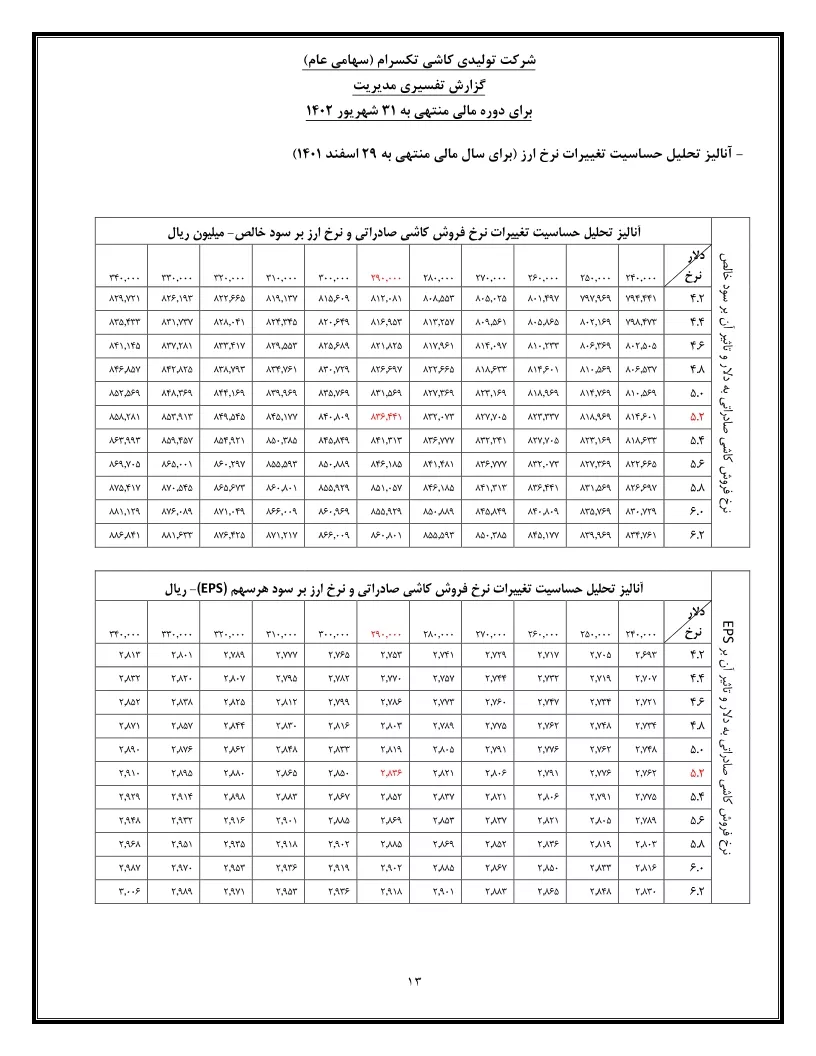 شرکت تولیدی کاشی تکسرام (سهامی عام)
گزارش تفسیری مدیریت
برای دوره مالی منتهی به ۳۱ شهریور ۱۴۰۲
- آنالیز تحلیل حساسیت تغییرات نرخ ارز (برای سال مالی منتهی به ۲۹ اسفند ۱۴۰۱)
نرخ فروش کاشی صادراتی به دلار و تاثیر آن بر سود خالص
آنالیز تحلیل حساسیت تغییرات نرخ فروش کاشی صادراتی و نرخ ارز بر سود خالص- میلیون ریال
دلار
نرخ ۲۴۰,۰۰۰ ۲۵۰,۰۰۰ ۲۶۰,۰۰۰ ۲۷۰,۰۰۰ ۲۸۰,۰۰۰ ۲۹۰,۰۰۰ ۳۰۰,۰۰۰ ۳۱۰,۰۰۰ ۳۲۰,۰۰۰ ۳۳۰,۰۰۰ ۳۴۰,۰۰۰
۴.۲ ۷۹۴,۴۴۱ ۷۹۷,۹۶۹ ۸۰۱,۴۹۷ ۸۰۵,۰۲۵ ۸۰۸,۵۵۳ ۸۱۲,۰۸۱ ۸۱۵,۶۰۹ ۸۱۹,۱۳۷ ۸۲۲,۶۶۵ ۸۲۶,۱۹۳ ۸۲۹,۷۲۱
۴.۴ ۷۹۸,۴۷۳ ۸۰۲,۱۶۹ ۸۰۵,۸۶۵ ۸۰۹,۵۶۱ ۸۱۳,۲۵۷ ۸۱۶,۹۵۳ ۸۲۰,۶۴۹ ۸۲۴,۳۴۵ ۸۲۸,۰۴۱ ۸۳۱,۷۳۷ ۸۳۵,۴۳۳
۴.۶ ۸۰۲,۵۰۵ ۸۰۶,۳۶۹ ۸۱۰,۲۳۳ ۸۱۴,۰۹۷ ۸۱۷,۹۶۱ ۸۲۱,۸۲۵ ۸۲۵,۶۸۹ ۸۲۹,۵۵۳ ۸۳۳,۴۱۷ ۸۳۷,۲۸۱ ۸۴۱,۱۴۵
۴.۸ ۸۰۶,۵۳۷ ۸۱۰,۵۶۹ ۸۱۴,۶۰۱ ۸۱۸,۶۳۳ ۸۲۲,۶۶۵ ۸۲۶,۶۹۷ ۸۳۰,۷۲۹ ۸۳۴,۷۶۱ ۸۳۸,۷۹۳ ۸۴۲,۸۲۵ ۸۴۶,۸۵۷
۵.۰ ۸۱۰,۵۶۹ ۸۱۴,۷۶۹ ۸۱۸,۹۶۹ ۸۲۳,۱۶۹ ۸۲۷,۳۶۹ ۸۳۱,۵۶۹ ۸۳۵,۷۶۹ ۸۳۹,۹۶۹ ۸۴۴,۱۶۹ ۸۴۸,۳۶۹ ۸۵۲,۵۶۹
۵.۲ ۸۱۴,۶۰۱ ۸۱۸,۹۶۹ ۸۲۳,۳۳۷ ۸۲۷,۷۰۵ ۸۳۲,۰۷۳ ۸۳۶,۴۴۱ ۸۴۰,۸۰۹ ۸۴۵,۱۷۷ ۸۴۹,۵۴۵ ۸۵۳,۹۱۳ ۸۵۸,۲۸۱
۵.۴ ۸۱۸,۶۳۳ ۸۲۳,۱۶۹ ۸۲۷,۷۰۵ ۸۳۲,۲۴۱ ۸۳۶,۷۷۷ ۸۴۱,۳۱۳ ۸۴۵,۸۴۹ ۸۵۰,۳۸۵ ۸۵۴,۹۲۱ ۸۵۹,۴۵۷ ۸۶۳,۹۹۳
۵.۶ ۸۲۲,۶۶۵ ۸۲۷,۳۶۹ ۸۳۲,۰۷۳ ۸۳۶,۷۷۷ ۸۴۱,۴۸۱ ۸۴۶,۱۸۵ ۸۵۰,۸۸۹ ۸۵۵,۵۹۳ ۸۶۰,۲۹۷ ۸۶۵,۰۰۱ ۸۶۹,۷۰۵
۵.۸ ۸۲۶,۶۹۷ ۸۳۱,۵۶۹ ۸۳۶,۴۴۱ ۸۴۱,۳۱۳ ۸۴۶,۱۸۵ ۸۵۱,۰۵۷ ۸۵۵,۹۲۹ ۸۶۰,۸۰۱ ۸۶۵,۶۷۳ ۸۷۰,۵۴۵ ۸۷۵,۴۱۷
۶.۰ ۸۳۰,۷۲۹ ۸۳۵,۷۶۹ ۸۴۰,۸۰۹ ۸۴۵,۸۴۹ ۸۵۰,۸۸۹ ۸۵۵,۹۲۹ ۸۶۰,۹۶۹ ۸۶۶,۰۰۹ ۸۷۱,۰۴۹ ۸۷۶,۰۸۹ ۸۸۱,۱۲۹
۶.۲ ۸۳۴,۷۶۱ ۸۳۹,۹۶۹ ۸۴۵,۱۷۷ ۸۵۰,۳۸۵ ۸۵۵,۵۹۳ ۸۶۰,۸۰۱ ۸۶۶,۰۰۹ ۸۷۱,۲۱۷ ۸۷۶,۴۲۵ ۸۸۱,۶۳۳ ۸۸۶,۸۴۱
نرخ فروش کاشی صادراتی به دلار و تاثیر آن بر EPS
آنالیز تحلیل حساسیت تغییرات نرخ فروش کاشی صادراتی و نرخ ارز بر سود هرسهم (EPS)- ریال
دلار
نرخ ۲۴۰,۰۰۰ ۲۵۰,۰۰۰ ۲۶۰,۰۰۰ ۲۷۰,۰۰۰ ۲۸۰,۰۰۰ ۲۹۰,۰۰۰ ۳۰۰,۰۰۰ ۳۱۰,۰۰۰ ۳۲۰,۰۰۰ ۳۳۰,۰۰۰ ۳۴۰,۰۰۰
۴.۲ ۲,۶۹۳ ۲,۷۰۵ ۲,۷۱۷ ۲,۷۲۹ ۲,۷۴۱ ۲,۷۵۳ ۲,۷۶۵ ۲,۷۷۷ ۲,۷۸۹ ۲,۸۰۱ ۲,۸۱۳
۴.۴ ۲,۷۰۷ ۲,۷۱۹ ۲,۷۳۲ ۲,۷۴۴ ۲,۷۵۷ ۲,۷۷۰ ۲,۷۸۲ ۲,۷۹۵ ۲,۸۰۷ ۲,۸۲۰ ۲,۸۳۲
۴.۶ ۲,۷۲۱ ۲,۷۳۴ ۲,۷۴۷ ۲,۷۶۰ ۲,۷۷۳ ۲,۷۸۶ ۲,۷۹۹ ۲,۸۱۲ ۲,۸۲۵ ۲,۸۳۸ ۲,۸۵۲
۴.۸ ۲,۷۳۴ ۲,۷۴۸ ۲,۷۶۲ ۲,۷۷۵ ۲,۷۸۹ ۲,۸۰۳ ۲,۸۱۶ ۲,۸۳۰ ۲,۸۴۴ ۲,۸۵۷ ۲,۸۷۱
۵.۰ ۲,۷۴۸ ۲,۷۶۲ ۲,۷۷۶ ۲,۷۹۱ ۲,۸۰۵ ۲,۸۱۹ ۲,۸۳۳ ۲,۸۴۸ ۲,۸۶۲ ۲,۸۷۶ ۲,۸۹۰
۵.۲ ۲,۷۶۲ ۲,۷۷۶ ۲,۷۹۱ ۲,۸۰۶ ۲,۸۲۱ ۲,۸۳۶ ۲,۸۵۰ ۲,۸۶۵ ۲,۸۸۰ ۲,۸۹۵ ۲,۹۱۰
۵.۴ ۲,۷۷۵ ۲,۷۹۱ ۲,۸۰۶ ۲,۸۲۱ ۲,۸۳۷ ۲,۸۵۲ ۲,۸۶۷ ۲,۸۸۳ ۲,۸۹۸ ۲,۹۱۴ ۲,۹۲۹
۵.۶ ۲,۷۸۹ ۲,۸۰۵ ۲,۸۲۱ ۲,۸۳۷ ۲,۸۵۳ ۲,۸۶۹ ۲,۸۸۵ ۲,۹۰۱ ۲,۹۱۶ ۲,۹۳۲ ۲,۹۴۸
۵.۸ ۲,۸۰۳ ۲,۸۱۹ ۲,۸۳۶ ۲,۸۵۲ ۲,۸۶۹ ۲,۸۸۵ ۲,۹۰۲ ۲,۹۱۸ ۲,۹۳۵ ۲,۹۵۱ ۲,۹۶۸
۶.۰ ۲,۸۱۶ ۲,۸۳۳ ۲,۸۵۰ ۲,۸۶۷ ۲,۸۸۵ ۲,۹۰۲ ۲,۹۱۹ ۲,۹۳۶ ۲,۹۵۳ ۲,۹۷۰ ۲,۹۸۷
۶.۲ ۲,۸۳۰ ۲,۸۴۸ ۲,۸۶۵ ۲,۸۸۳ ۲,۹۰۱ ۲,۹۱۸ ۲,۹۳۶ ۲,۹۵۳ ۲,۹۷۱ ۲,۹۸۹ ۳,۰۰۶
۱۳